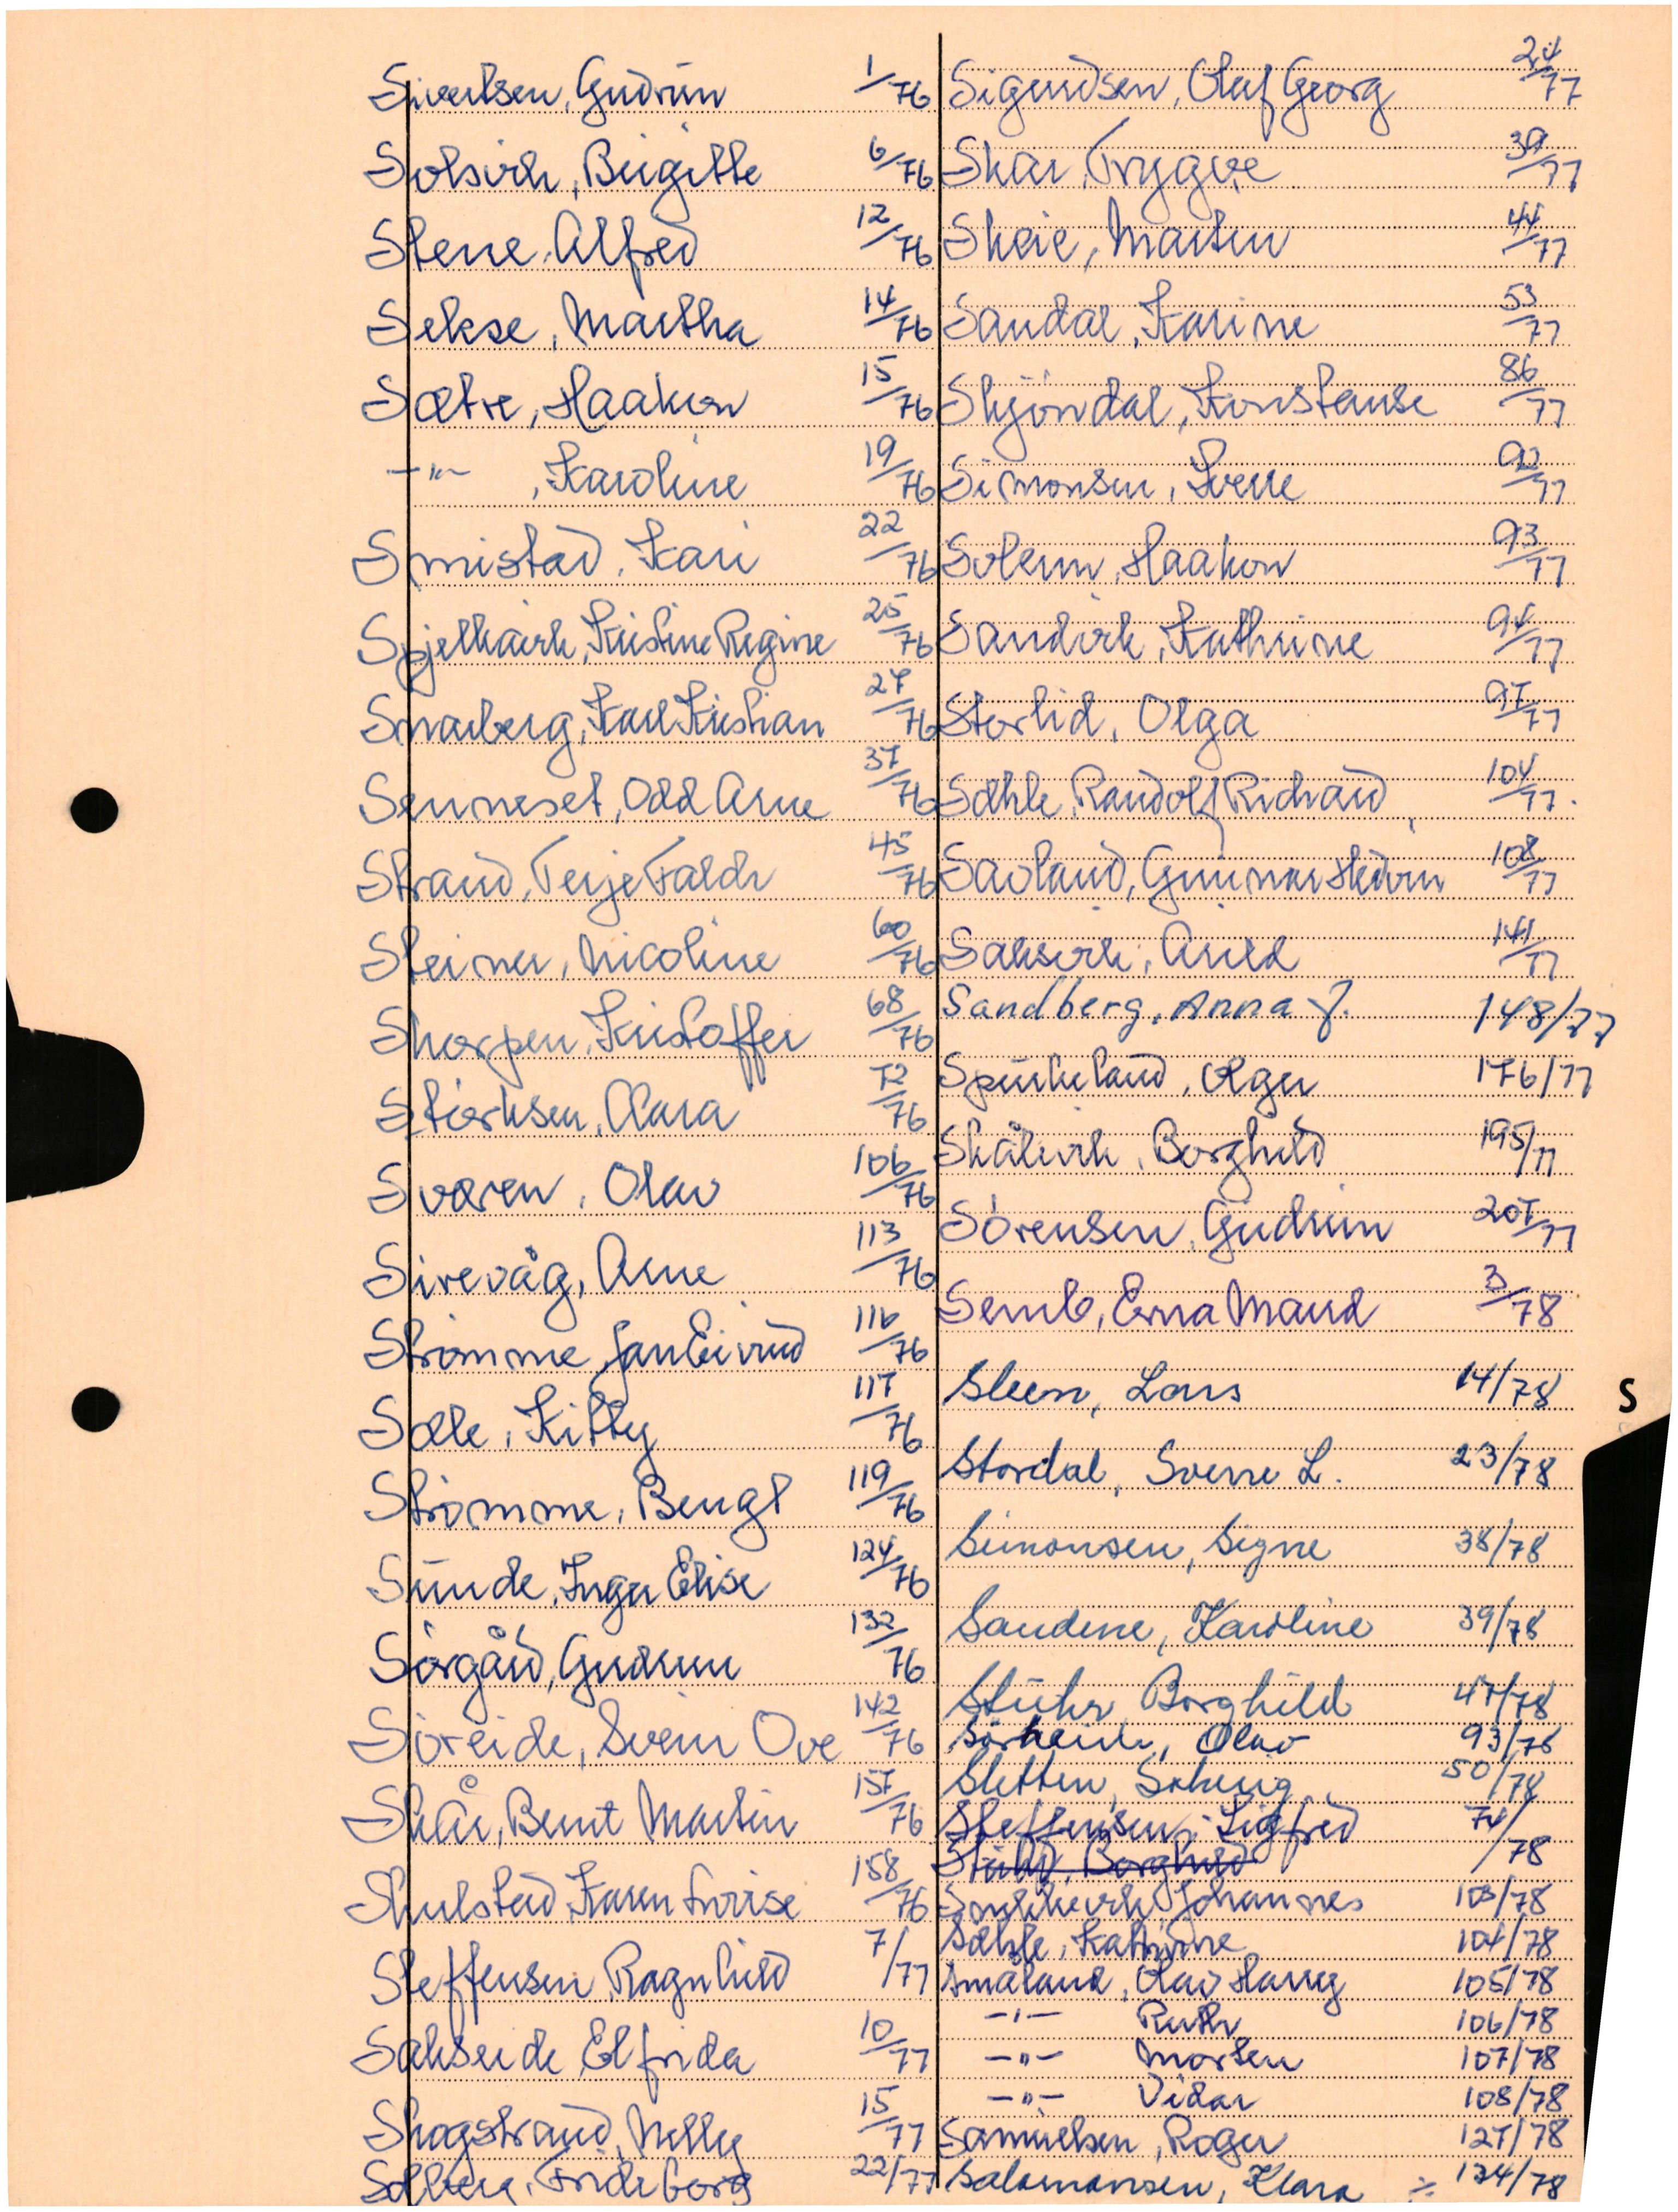 Sivertsen, Gudrun 1/76
Solsvik, Birgitte 6/76
Stene, Alfred 12/76
Sekse, Martha 14/76
Sætre, Haakon 15/76
-"- , Karoline 19/76
Smistad, Kari 22/76
Spjelkavik, Kristine Regine 25/76
Snarberg, Karl Kristian 27/76
Senneset, Odd Arne 37/76
Strand, Terje Falch 45/76
Steiner, Nicoline 60/76
Skorpen, Kristoffer 68/76
Størksen, Clara 72/76
Sværen, Olav 106/76
Sirevåg, Arne 113/76
Strømme Jan Eivind 116/76
Sæle, Kitty 117/76
Strømme, Bengt 119/76
Sunde, Inger Elise 124/76
Sørgård, Gudrun 132/76
Søreide, Svein Ove 142/76
Skår, Bernt Martin 157/76
Skulstad, Karen Lovise 158/76
Steffensen, Ragnhild 7/77
Sakseide, Elfrida 10/77
Skogstrand, Nelly 15/77
Solberg, Frideborg 22/77
Sigurdsen, Olaf Georg 24/77
Skar, Trygve 39/77
Skeie, Martin 44/77
Sandal, Karine 53/77
Skjøndal, Konstanse 86/77
Simonsen, Sverre 92/77
Solemn, Haakon 93/77
Sandvik, Kathrine 94/77
Storlid, Olga 97/77
Sæhle, Randolf Richard 104/77.
Savland, Gunnar Hedvin 108/77
Saksvik, Arild 141/77
Sandberg, Anna J. 148/77
Spurkeland, Olga 176/77
Skålevik, Borghild 195/77
Sørensen, Gudrun 207/77
Semb, Erna Maud 3/78
Steen, Lars 14/78
S
Stordal, Sverre L. 23/78
Simonsen, Signe 38/78
Sandene, Karoline 39/78
Stuhr, Borghild 47/78
Sørheim, Olav 93/78
Sletten, Solveig 50/78
Steffensen, Sigfred 74/78
Borghild
Johannes 103/78
Sæhle, Kathrine 104/78
Småland, Olav Harry 105/78
-"- Ruth 106/78
-"- Morten 107/78
-"- Vidar 108/78
Samuelsen, Roger 127/78
Salamonsen, Klara ÷ 134/78